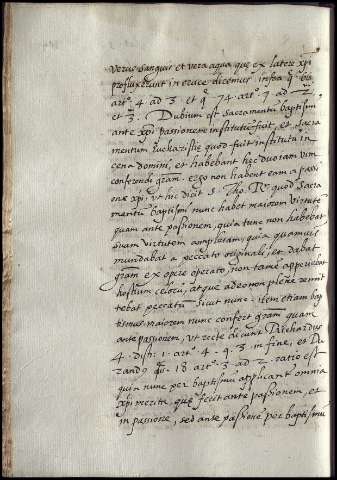 verus sanguis et vera aqua que ex latere xpi
profluxerunt in cruce dicemus infra q.
art.º 4 ad 3 et q. 74 art.º 7 ad 2
et 3. Dubium est sacramentũ baptismi
ante xpi passionem institutũ fuit, et sacra
mentum eucharistie quod fuit institutũ in
cena domini, et habebant hec duo tam vim
conferendi grãm. ergo non habent eam a passi
one xpi. ut hic dicit S. Tho. Rº quod sacra
mentũ baptismi nunc habet maiorem virtutẽ
quam ante passionem, quia tunc non habebat
suam virtutem ampliatam, quia quamvis
mundabat a peccato originali, et dabat
grãm ex opere operato, non tamẽ aperiebat
hostium celorũ, atque adeo non plene remit
tebat peccatũ sicut nunc. item etiam bap
tismus maiorem nunc confert grãm quam
ante passionem, ut recte dicunt Richardus
4. dist. 1. art.º 4. q. 3. in fine, et Du
rand9 q. 18 art.º 3 ad 2. ratio est
quia nunc per baptismũ applicant omnia
xpi merita que fecit ante passionem, et
in passione, sed ante passione per baptismũ